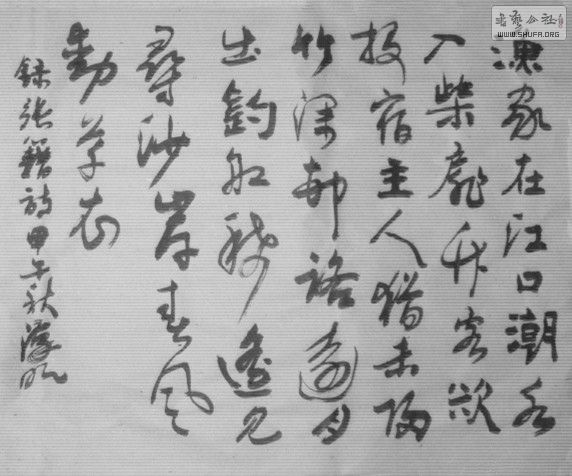 漁家在江口潮水
入柴扉行客欲
投宿主人猶未歸
竹深邨路遠月
出釣船稀遙見
尋沙岸春風
動草衣
録張籍詩甲午秋
書藝公社
WWW.SHUFA.ORG